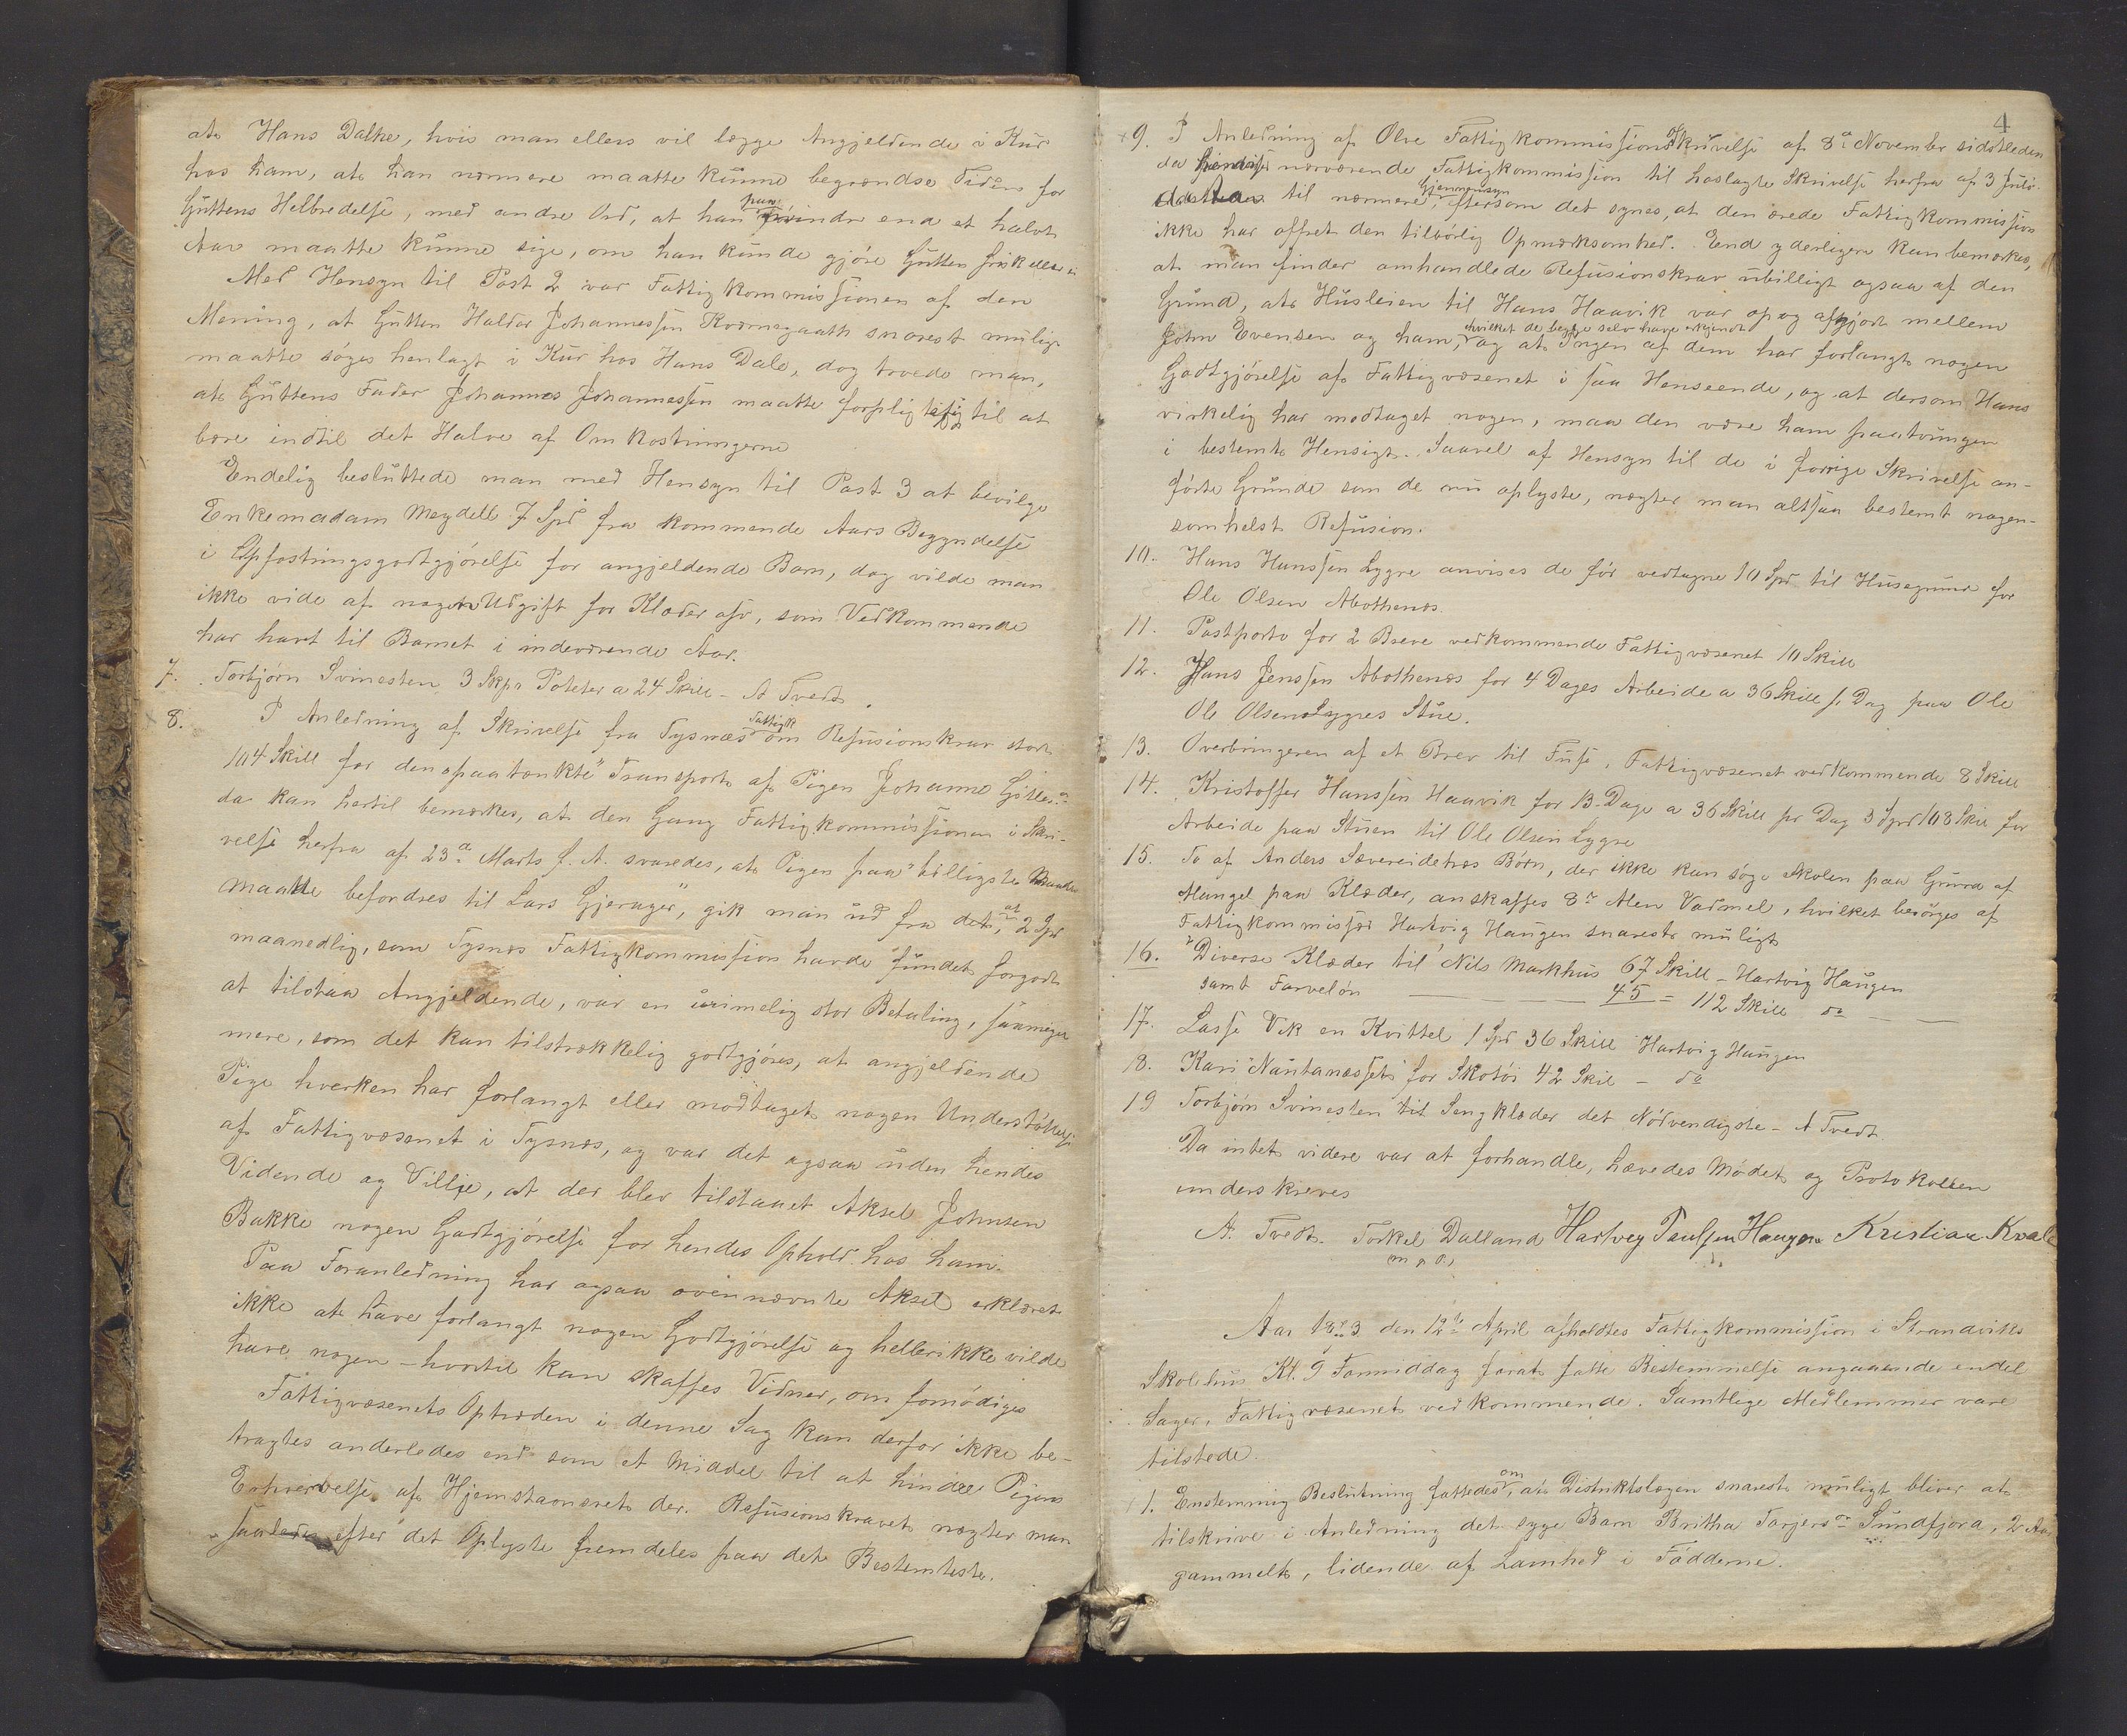 at Hans Dahe, hvis man ellers vil lægge Angjeldende i Kur
hos ham, at han nærmere maatte kunne begrændse Tiden for
Guttens Helbredelse, med andre Ord, at han paa mindre end et halvt
Aar maatte kunne sige, om han kunde gjöre Gutten frisk eller ei
Med Hensyn til Post 2 var Fattigkommissionen af den
Mening, at Gutten Haldor Johannessen Kornegaath snarest mulig
maatte söges henlagt i Kur hos Hans Dale, dog troede man,
at Guttens Fader Johannes Johannessen maatte forpligte sig til at
bære indtil det Halve af Omkostningerne
Endelig besluttede man med Hensyn til Post 3 at bevilge
Enkemadam Meydell 7 Spd fra kommende Aars Begyndelse
i Opfostringsgodtgjörelse for angjeldende Barn, dog vilde man
ikke vide af nogen Udgift for Klæder osv, som Vedkommende
har havt til Barnet i indeværende Aar.
7. Torbjörn Svinesten 3 Skpr Poteter a 24 Skill - A Tvedt.
8. I Anledning af Skrivelse fra Tysnæs Fattigk om Refusionskrav stort
104 Skill for den "paatænkte" Transport af Pigen Johanne
da kan hertil bemærkes, at den Gang Fattigkommissionen i Skri-
velse herfra af 23de Marts f. A. svaredes, at Pigen "paa billigste Maade
maatte befordres til Lars Gjerager", gik man ud fra det, at 2 Spd
maanedlig, som Tysnæs Fattigkommission havde fundet forgodt
at tilstaa Angjeldende, var en urimelig stor Betaling, saameget
mere, som det kan tilstrækkelig godtgjöres, at angjeldende
Pige hverken har forlangt eller modtaget nogen Understöttelse
af Fattigvæsenet i Tysnæs, og var det ogsaa uden hendes
Vidende og Villie, at der blev tilstaaet Aksel Johnsen
Bakke nogen Godtgjörelse for hendes Ophold hos ham.
Paa Foranledning har ogsaa ovennævnte Aksel erklæret
ikke at have forlangt nogen Godtgjörelse og heller ikke vilde
have nogen - hvortil kan skaffes Vidner, om fornödiges
Fattigvæsenets Optræden i denne Sag kan derfor ikke be-
tragtes anderledes end som et Middel til at hindre Pigens
Erhvervelse af Hjemstavnsret der. Refusionskravet nægter man
saaledes efter det Oplyste fremdeles paa det Bestemteste.
4
9. I Anledning af Olve Fattigkommissions Skrivelse af 8de November sidstleden
da henviser nærværende Fattigkommission til hoslagte Skrivelse herfra af 3 Juli
til nærmere Gjennemsyn, eftersom det synes, at den ærede Fattigkommission
ikke har offret den tilbörlig Opmærksomhed. End yderligere kan bemærkes,
at man finder omhandlede Refusionskrav ubilligt ogsaa af den
Grund, at Husleien til Hans Haavik var op og afgjort mellem
John Evensen og ham, hvilket de begge selv have erkjendt og at Ingen af dem har forlangt nogen
Godtgjörelse af Fattigvæsenet i saa Henseende, og at dersom Hans
virkelig har modtaget nogen, maa den være ham paatvungen
i bestemt Hensigt. Saavel af Hensyn til de i forrige Skrivelse an-
förte Grunde som de nu oplyste, nægter man altsaa bestemt nogen-
somhelst Refusion.
10. Hans Hanssen Lygre anvises de för vedtagne 10 Spd til Husegrund for
Ole Olsen Abothenæs.
11. Postporto for 2 Breve vedkommende Fattigvæsenet 10 Skill
12. Hans Jenssen Abothenæs for 4 Dages Arbeide a 36 Skill pr Dag paa Ole
Ole Olsen Lygres Stue.
13. Overbringeren af et Brev til Fuse, Fattigvæsenet vedkommende 8 Skill
14. Kristoffer Hanssen Haavik for 13 Dage a 36 Skill pr Dag 3 Spd 108 Skill for
Arbeide paa Stuen til Ole Olsen Lygre
15. To af Anders Sævereidetræs Börn, der ikke kan söge Skolen paa Grund af
Mangel paa Klæder, anskaffes 8 Alen Vadmel, hvilket besörges af
Fattigkommissær Hartvig Haugen snarest muligt
16. Diverse Klæder til Nils Markhus 67 Skill - Hartvig Haugen
samt Farvelön 45 = 112 Skill do
17. Lasse Vik en Kvittel 1 Spd 36 Skill Hartvig Haugen
18. Kari Nautanæsset for Skotöi 42 Skil - do
19 Torbjörn Svinesten til Sengklæder det Nödvendigste - A Tvedt
Da intet videre var at forhandle, hævedes Mödet og Protokollen
underskreves
A. Tvedt. Torkel Dalland Hartvig Paulsen Haugen Kristian Kvale
m. p. P.
Aar 1873 den 12te April afholdtes Fattigkommission i Strandviks
Skolehus Kl. 9 Formiddag forat fatte Bestemmelse angaaende endel
Sager, Fattigvæsenet vedkommende. Samtlige Medlemmer vare
tilstede.
1. Enstemmig Beslutning fattedes om, at Distriktslægen snarest muligt bliver at
tilskrive i Anledning det syge Barn Britha Torgersdr Sundfjord, 2 Aar
gammelt, lidende af Lamhed i Födderne.